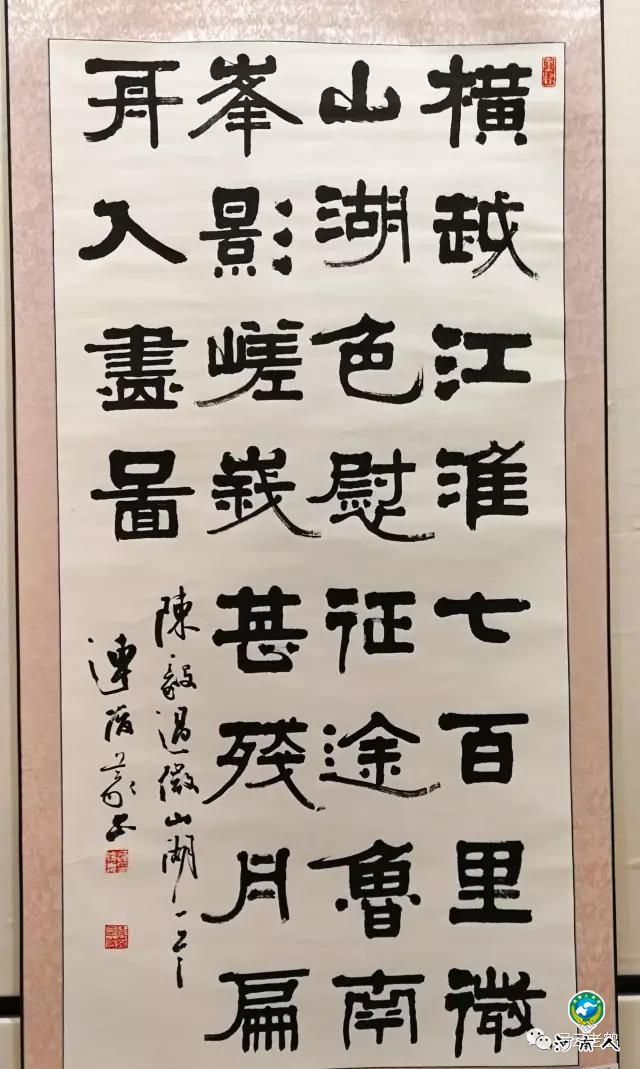 橫越江淮七百里微
山湖色慰征途魯南
峯影嵯峩甚殘月扁
舟入畫圖
陳毅過微山湖一首
連蔭
河南人